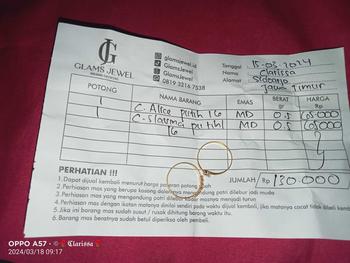 GLAMS JEWEL
glamsjewel.id
GlamsJewel
GlamsJewel
0819 3216 7538
Tanggal 15-03-2024
Nama Clarissa
Alamat Sidoarjo
Jawa Timur
POTONG NAMA BARANG EMAS BERAT HARGA
gr Rp
1 C. Alice putih 16 MD 0.5 65.000
1 putih MD 0.5 65.000
16
JUMLAH Rp 130.000
PERHATIAN !!!
1. Dapat dijual kembali menurut harga pasaran potong
2. Perhiasan mas yang berupa kosong dalamnya mengandung patri dilebur jadi muda
3. Perhiasan mas yang mengandung patri dilebur kadar masnya menjadi turun
4. Perhiasan mas dengan ikatan matanya dinilai sendiri pada waktu dijual kembali, jika matanya cacat tidak dibeli
5. Jika ini barang mas sudah susut / rusak dihitung barang waktu itu.
6. Barang mas beratnya sudah betul diperiksa oleh pembeli.
OPPO A57 · Clarissa
2024/03/18 09:17